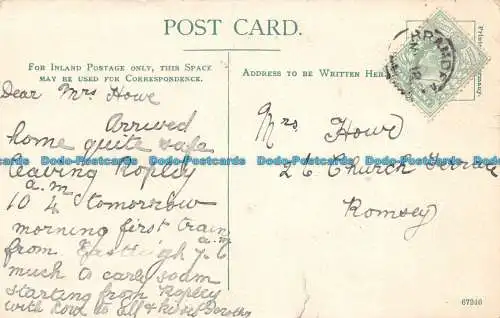 POST CARD.
FOR INLAND POSTAGE ONLY, THIS SPACE
MAY BE USED FOR CORRESPONDENCE.
Dear Mrs Howe
Arrived
home quite safe
leaving Ropley
a.m
10 4 tomorrow
morning first train
a.m
from Eastleigh 7.6
much to early
starting from Ropley
with love to all & kisses Dorothy
ADDRESS TO BE WRITTEN HERE
Mrs Howe
26 Church Terrace
Romsey
67240
Dodo-Postcards Dodo-Postcards Dodo-Postcards Dodo-Postcards
Dodo-Postcards Dodo-Postcards Dodo-Postcards Dodo-Postcards